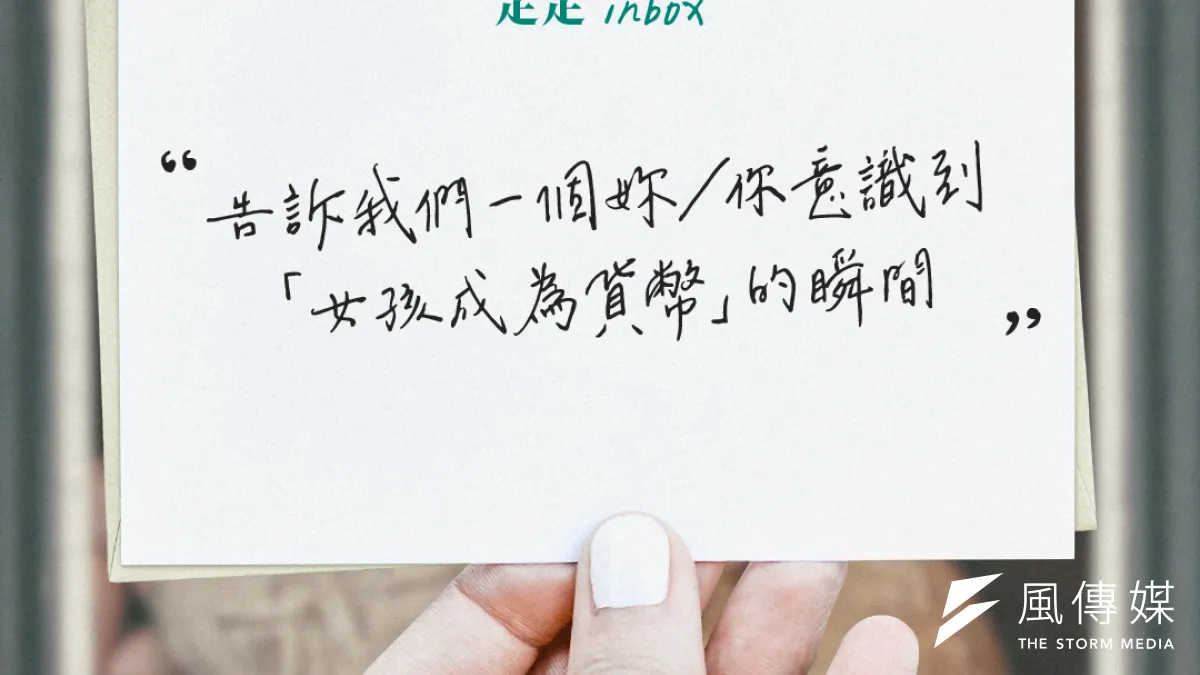 走走 inbox
“告訴我們一個妳／你意識到
「女孩成為貨幣」的瞬間”
風傳媒
THE STORM MEDIA